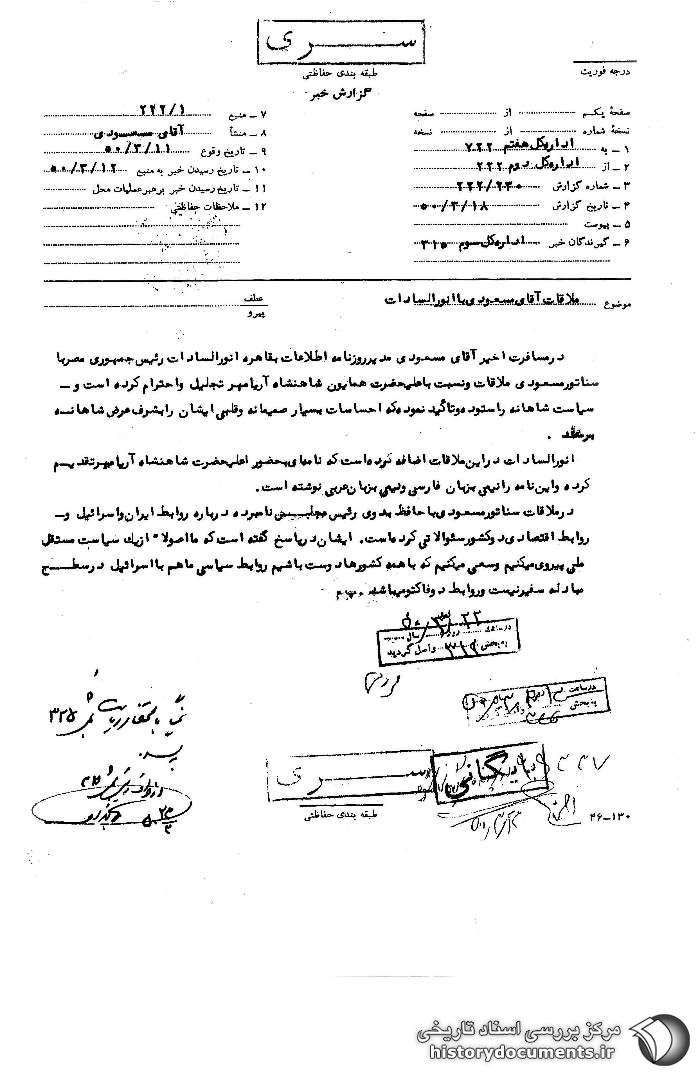 سری
طبقه بندی حفاظتی
درجه فوریت
گزارش خبر
صفحه یکم از صفحه
نسخهٔ شماره از نسخه
۱ ـ به اداره کل هفتم ۷۲۲
۲ ـ از اداره کل دوم ۲۲۲
۳ ـ شماره گزارش ۲۲۲/۲۳۰
۴ ـ تاریخ گزارش ۵۰/۳/۱۸
۵ ـ پیوست
۶ ـ گیرندگان خبر اداره کل سوم ۳۱۵
۷ ـ منبع ۲۲۲/۱
۸ ـ منشأ آقای مسعودی
۹ ـ تاریخ وقوع ۵۰/۳/۱۱
۱۰ ـ تاریخ رسیدن خبر به منبع ۵۰/۳/۱۲
۱۱ ـ تاریخ رسیدن خبر برهبر عملیات محل
۱۲ ـ ملاحظات حفاظتی
موضوع ملاقات آقای مسعودی با انور السادات
عطف
پیرو
در مسافرت اخیر آقای مسعودی مدیر روزنامه اطلاعات بقاهره انور السادات رئیس جمهوری مصر با
سناتور مسعودی ملاقات ونسبت باعلیحضرت همایون شاهنشاه آریامهر تجلیل واحترام کرده است و ـ
سیاست شاهانه را ستوده وتاکید نموده که احساسات بسیار صمیمانه وقلبی ایشان را بشرف عرض شاهانه
برساند .
انور السادات در این ملاقات اضافه کرده است که نامه‌ای بحضور اعلیحضرت شاهنشاه آریامهر تقدیم
کرده واین نامه را نیمی بزبان فارسی ونیمی بزبان عربی نوشته است.
در ملاقات سناتور مسعودی با حافظ بدوی رئیس مجلس نامبرده درباره روابط ایران واسرائیل و ـ
روابط اقتصادی دو کشور سئوالاتی کرده است. ایشان در پاسخ گفته است که ما اصولا" از یک سیاست مستقل
ملی پیروی میکنیم وسعی میکنیم که با همه کشورها دوست باشیم روابط سیاسی ما هم با اسرائیل در سطح
مبادله سفیر نیست وروابط دوفاکتو میباشد.
به بخش ۳۱۲ واصل گردید
سری
طبقه بندی حفاظتی
بایگانی
۳۲۷
۴۶-۱۳۰
مرکز بررسی اسناد تاریخی
historydocuments.ir